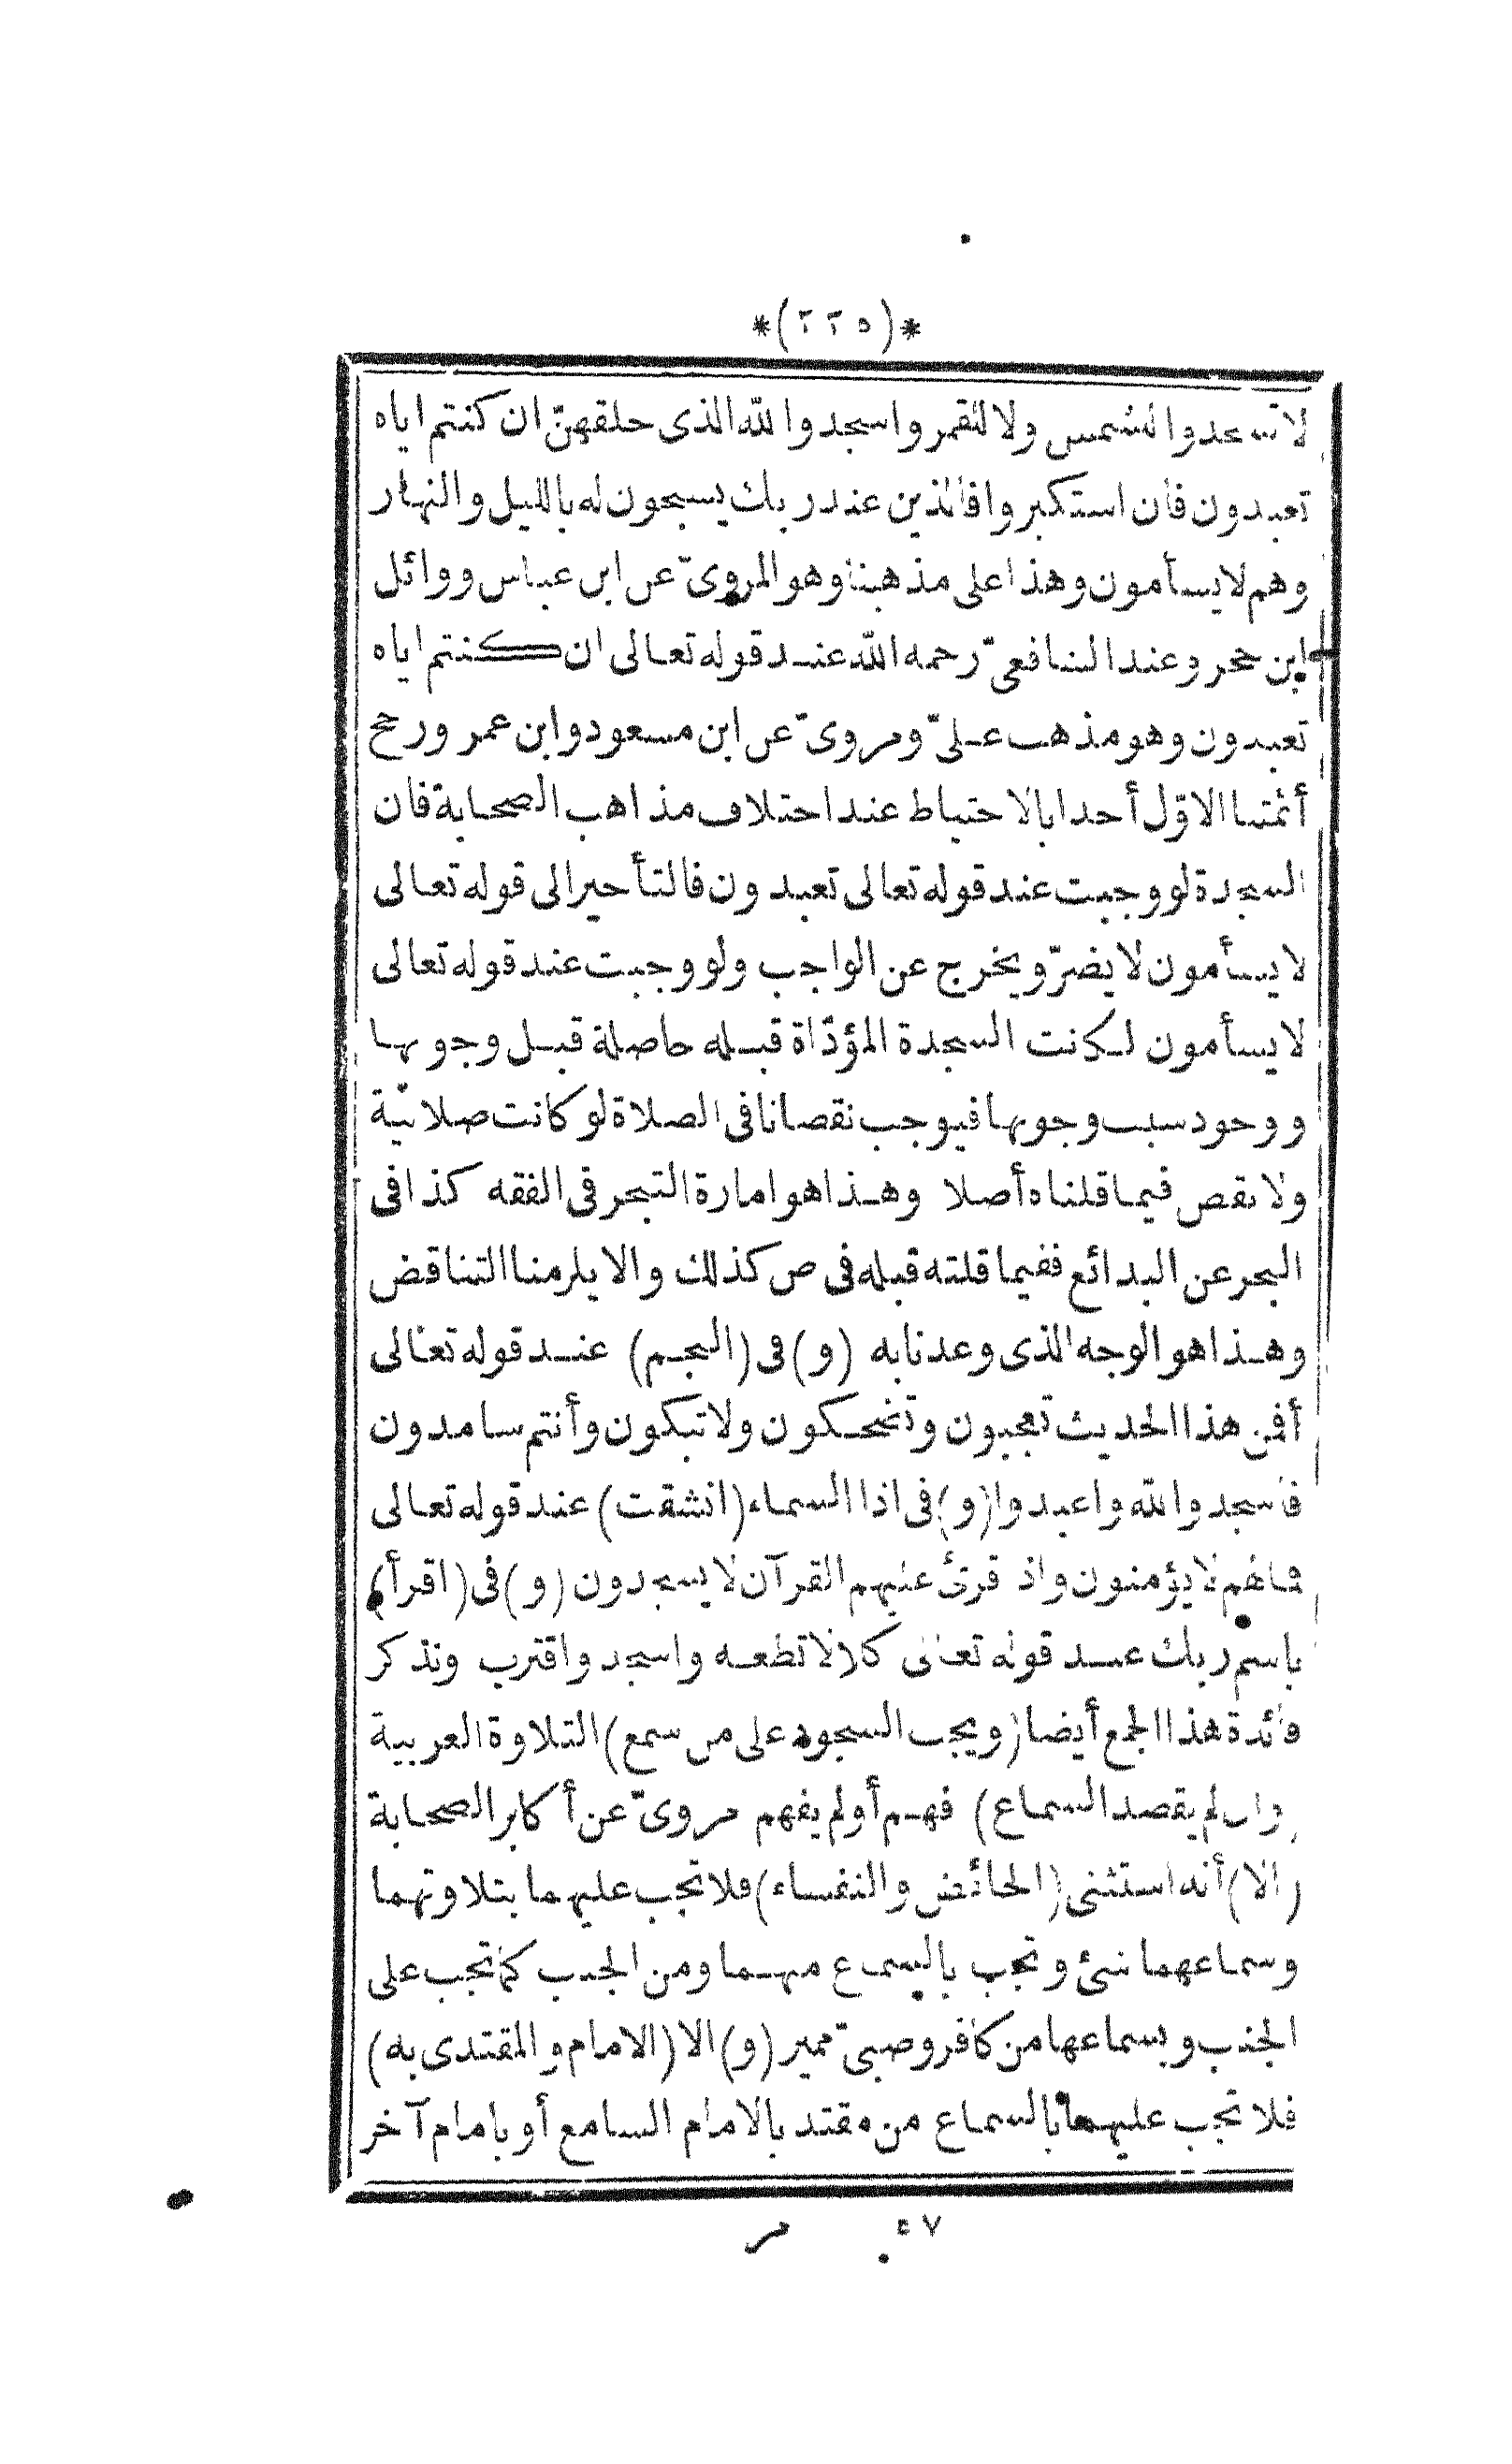 *(٢٢٥)*
لا تسجدوا للشمس ولا للقمر واسجدوا لله الذى خلقهنّ ان كنتم اياه
تعبدون فان استكبروا فالذين عند ربك يسبحون له بالليل والنهار
وهم لا يسأمون وهذا على مذهبنا وهو المروىّ عن ابن عباس ووائل
ابن حجر وعند الشافعىّ رحمه الله عند قوله تعالى ان كنتم اياه
تعبدون وهو مذهب علىّ ومروىّ عن ابن مسعود وابن عمر ورجح
أئمتنا الاوّل أخذا بالاحتياط عند اختلاف مذاهب الصحابة فان
السجدة لو وجبت عند قوله تعالى تعبدون فالتأخير الى قوله تعالى
لا يسأمون لا يضرّ ويخرج عن الواجب ولو وجبت عند قوله تعالى
لا يسأمون لكانت السجدة المؤدّاة قبله حاصلة قبل وجوبها
ووجود سبب وجوبها فيوجب نقصانا فى الصلاة لو كانت صلاتيّة
ولا نقص فيما قلناه أصلا وهذا هو امارة التبحر فى الفقه كذا فى
البحر عن البدائع ففيما قلته قبله فى ص كذلك والا يلزمنا التناقض
وهذا هو الوجه الذى وعدنا به (و) فى (النجم) عند قوله تعالى
أفمن هذا الحديث تعجبون وتضحكون ولا تبكون وأنتم سامدون
فاسجدوا لله واعبدوا (و) فى اذا السماء (انشقت) عند قوله تعالى
فما لهم لا يؤمنون واذا قرئ عليهم القرآن لا يسجدون (و) فى (اقرأ)
باسم ربك عند قوله تعالى كلا لا تطعه واسجد واقترب ونذكر
فائدة هذا الجمع أيضا (ويجب السجود على من سمع) التلاوة العربية
(وان لم يقصد السماع) فهم أو لم يفهم مروىّ عن أكابر الصحابة
(الا) أنه استثنى (الحائض والنفساء) فلا تجب عليهما بتلاوتهما
وسماعهما شئ وتجب بالسماع منهما ومن الجنب كما تجب على
الجنب وبسماعها من كافر وصبىّ مميز (و) الا (الامام والمقتدى به)
فلا تجب عليهما بالسماع من مقتد بالامام السامع أو بامام آخر
٥٧ مر